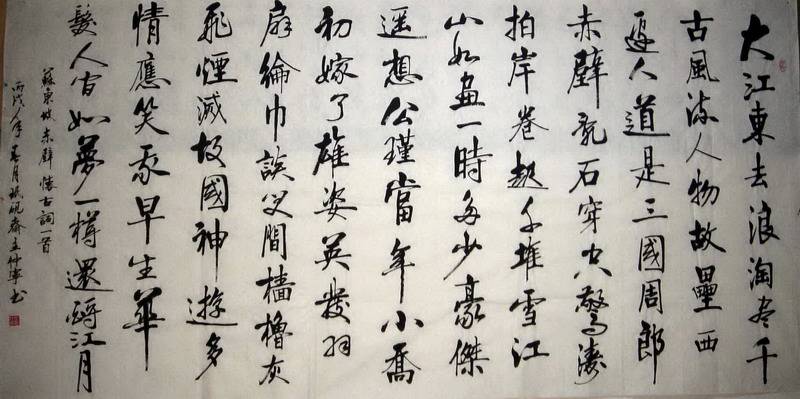 大江東去浪淘盡千
古風流人物故壘西
邊人道是三國周郎
赤壁亂石穿空驚濤
拍岸卷起千堆雪江
山如畫一時多少豪傑
遥想公瑾當年小喬
初嫁了雄姿英發羽
扇綸巾談笑間檣櫓灰
飛煙滅故國神遊多
情應笑我早生華
髮人間如夢一樽還酹江月
蘇東坡赤壁懷古詞一首
丙戌年春月 硯齋主仲寧書